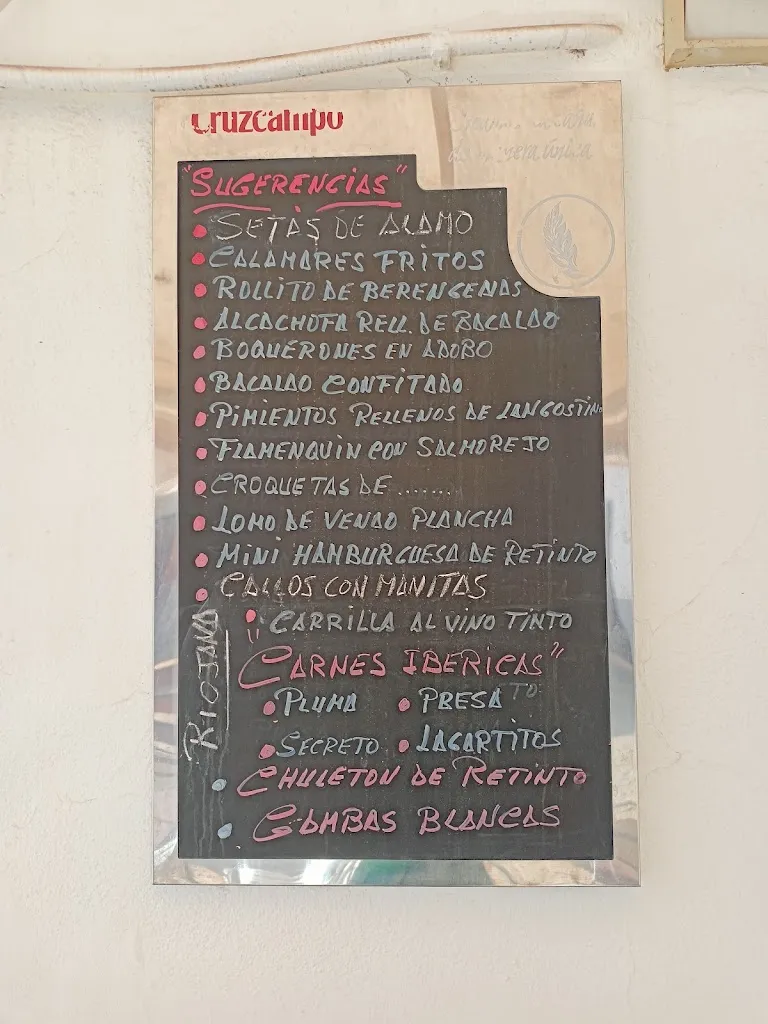 cruzcampo
"SUGERENCIAS"
• SETAS DE ALAMO
• CALAMARES FRITOS
• ROLLITO DE BERENGENAS
• ALCACHOFA RELL. DE BACALAO
• BOQUERONES EN ADOBO
• BACALAO CONFITADO
• PIMIENTOS RELLENOS DE LANGOSTIN
• FLAMENQUIN CON SALMOREJO
• CROQUETAS DE .......
• LOMO DE VENAO PLANCHA
• MINI HAMBURGUESA DE RETINTO
• CALLOS CON MANITAS
• CARRILLA AL VINO TINTO
RIOJANA
"CARNES IBERICAS"
• PLUMA • PRESA TO
• SECRETO • LAGARTITOS
• CHULETON DE RETINTO
• GAMBAS BLANCAS